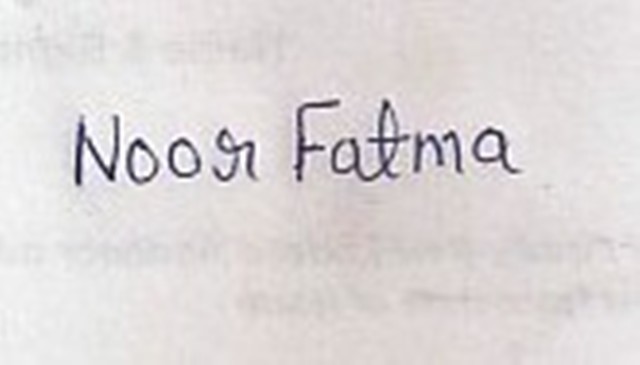 Noor Fatma